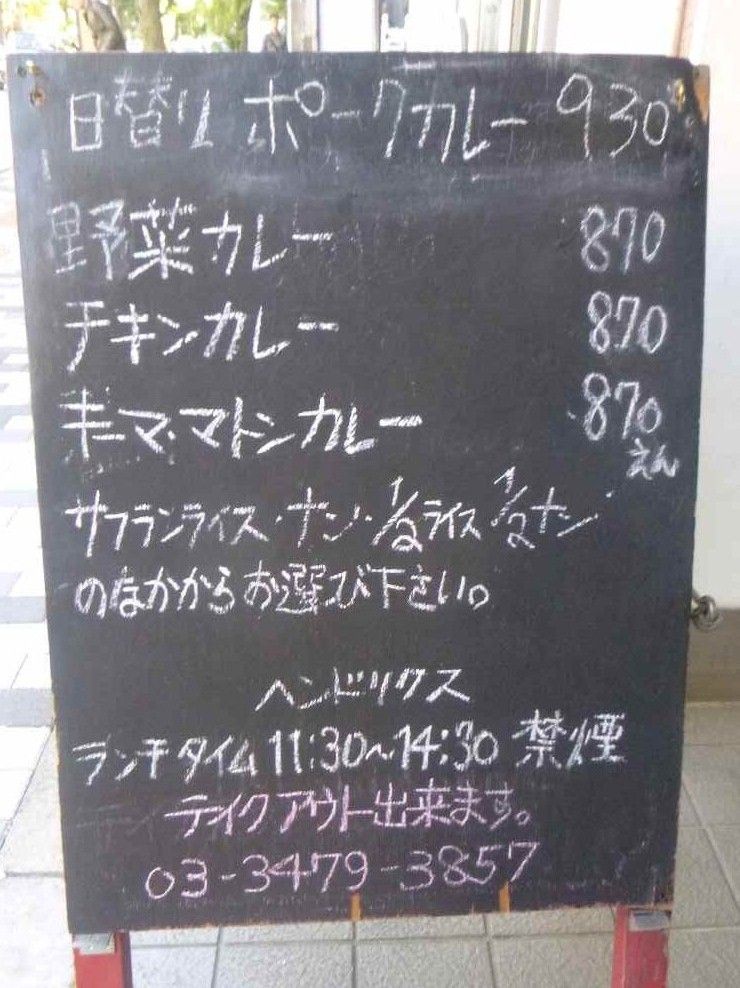 日替り ポークカレー 930
野菜カレー 870
チキンカレー 870
キーマ・マトンカレー 870
えん
サフランライス・ナン・1/2ライス 1/2ナン
のなかからお選び下さい。
ヘンドリクス
ランチタイム 11:30〜14:30 禁煙
テイクアウト出来ます。
03-3479-3857